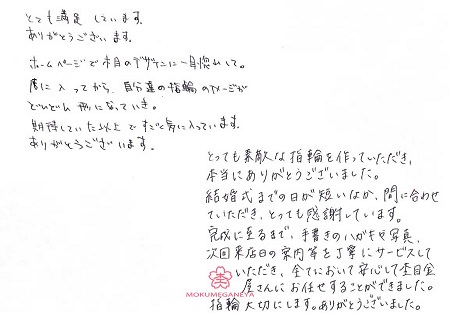 とても満足しています。
ありがとうございます。
ホームページで木目のデザインに一目惚れして。
店に入ってから、自分達の指輪のイメージが
どんどん形になっていき。
期待していた以上ですごく気に入っています。
ありがとうございます。
とっても素敵な指輪を作っていただき、
本当にありがとうございました。
結婚式までの日が短いなか、間に合わせ
ていただき、とっても感謝しています。
完成に至るまで、手書きのハガキや写真、
次回来店日の案内等を丁寧にサービスして
いただき、全てにおいて安心して杢目金
屋さんにお任せすることができました。
指輪大切にします。ありがとうございました。
MOKUMEGANEYA